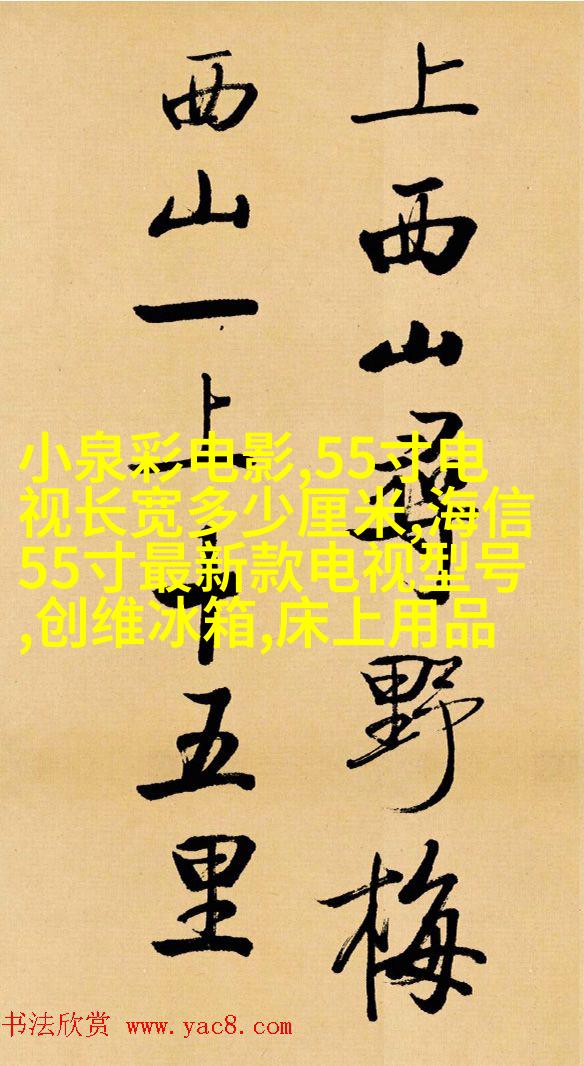 上西山尋野梅
西山一上十五里
小泉彩电影,55寸电
视长宽多少厘米,海信
55寸最新款电视型号
,创维冰箱,床上用品
书法欣赏 www.yac8.com